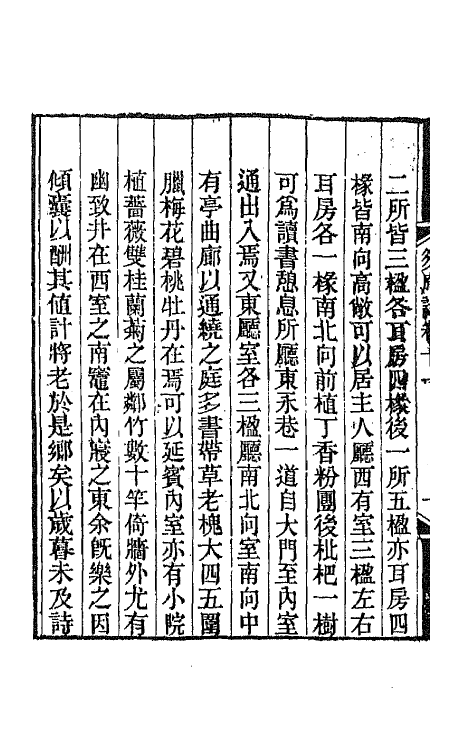 二所皆三楹各耳房四椽後一所五楹亦耳房四
椽皆南向高敞可以居主人廳西有室三楹左右
耳房各一椽南北向前植丁香粉團後枇杷一樹
可爲讀書憩息所廳東永巷一道自大門至內室
通出入焉又東廳室各三楹廳南北向室南向中
有亭曲廊以通繞之庭多書帶草老槐大四五圍
臘梅花碧桃牡丹在焉可以延賓內室亦有小院
植薔薇雙桂蘭菊之屬鄰竹數十竿倚牆外尤有
幽致井在西室之南竈在內寢之東余旣樂之因
傾囊以酬其值計將老於是鄉矣以歲暮未及詩